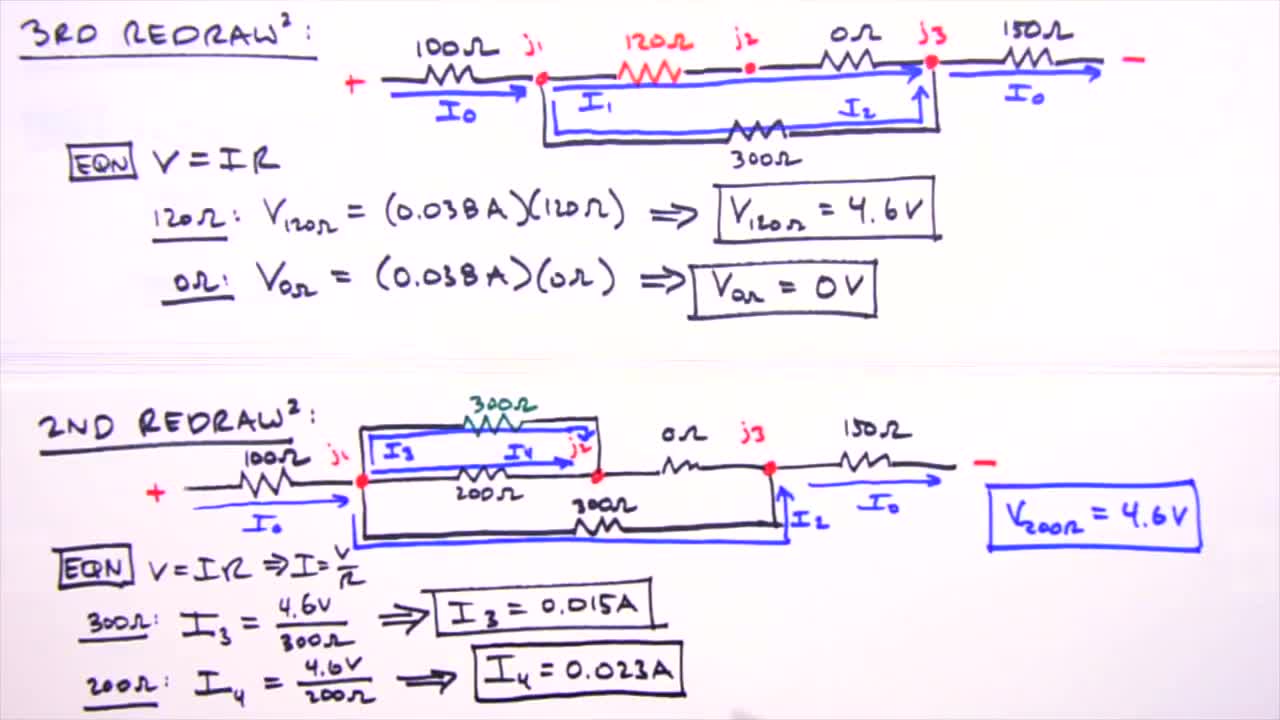 3RD REDRAW²:
100Ω j₁ 120Ω j₂ 0Ω j₃ 150Ω
+ −
I₀ I₁ I₂ I₀
300Ω
EQN V = IR
120Ω: V₁₂₀Ω = (0.038A)(120Ω) ⇒ V₁₂₀Ω = 4.6V
0Ω: V₀Ω = (0.038A)(0Ω) ⇒ V₀Ω = 0V
2ND REDRAW²:
300Ω
100Ω j₁ I₃ I₄ j₂ 0Ω j₃ 150Ω
+ −
200Ω
I₀ 300Ω I₂ I₀
V₂₀₀Ω = 4.6V
EQN V = IR ⇒ I = V/R
300Ω: I₃ = 4.6V/300Ω ⇒ I₃ = 0.015A
200Ω: I₄ = 4.6V/200Ω ⇒ I₄ = 0.023A